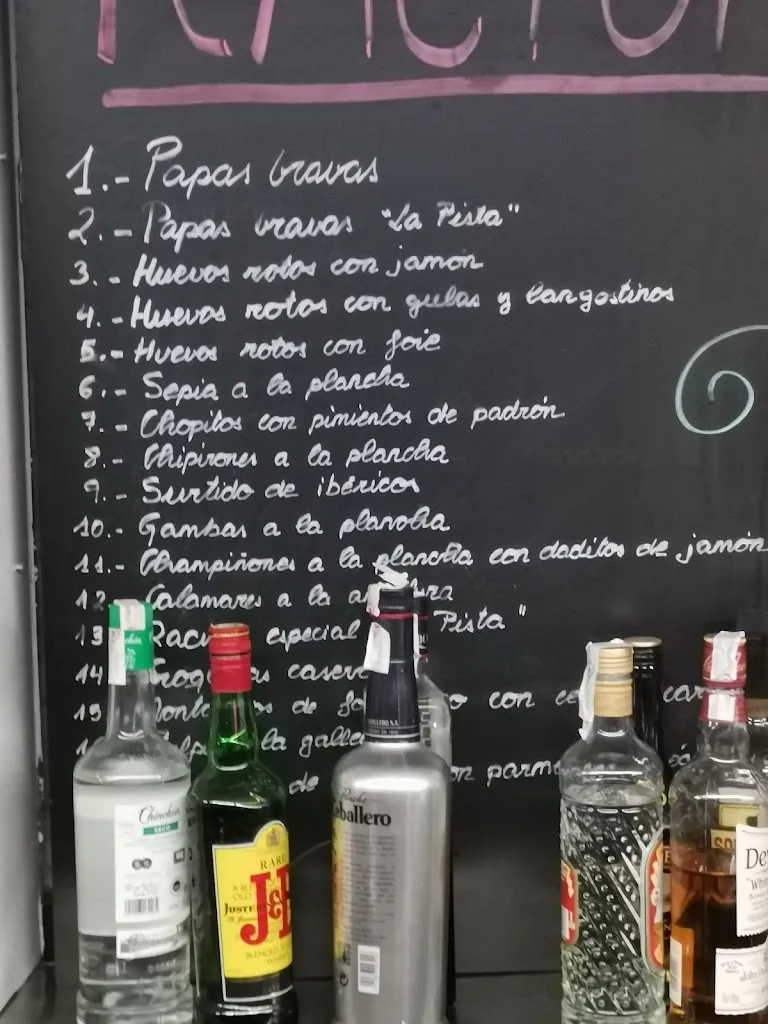 1.- Papas bravas
2.- Papas bravas "La Pista"
3.- Huevos rotos con jamón
4.- Huevos rotos con gulas y langostinos
5.- Huevos rotos con foie
6.- Sepia a la plancha
7.- Chopitos con pimientos de padrón
8.- Chipirones a la plancha
9.- Surtido de ibéricos
10.- Gambas a la plancha
11.- Champiñones a la plancha con daditos de jamón
12 Calamares a la
13 especial Pista"
14
15 de con
la
de
Chinchón
SECO
RARE
J&B
JUSTE
BLENDED
Caballero
De